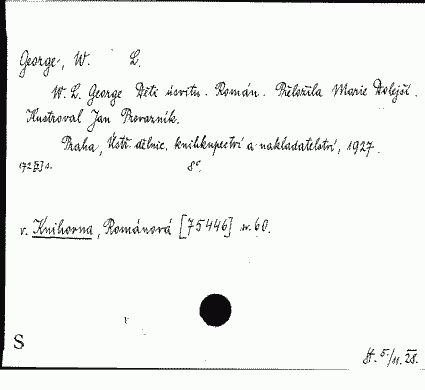 George, W. L.
W. L. George Děti úsvitu. Román. Přeložila Marie Dolejší.
Ilustroval Jan Provazník.
Praha, Ústř. dělnic. knihkupectví a nakladatelství, 1927.
172 [I] s. 8°.
v. Knihovna, Románová [75446] sv. 60.
S
H. 5/11. 28.